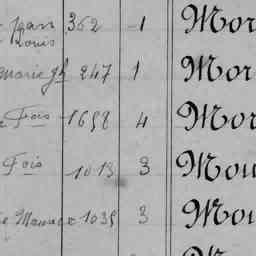 Jean 362 1 Mor
Louis
marie gh 247 1 Mor
Fois 1658 4 Mor
Fois 1013 3 Mou
1035 3 Mou